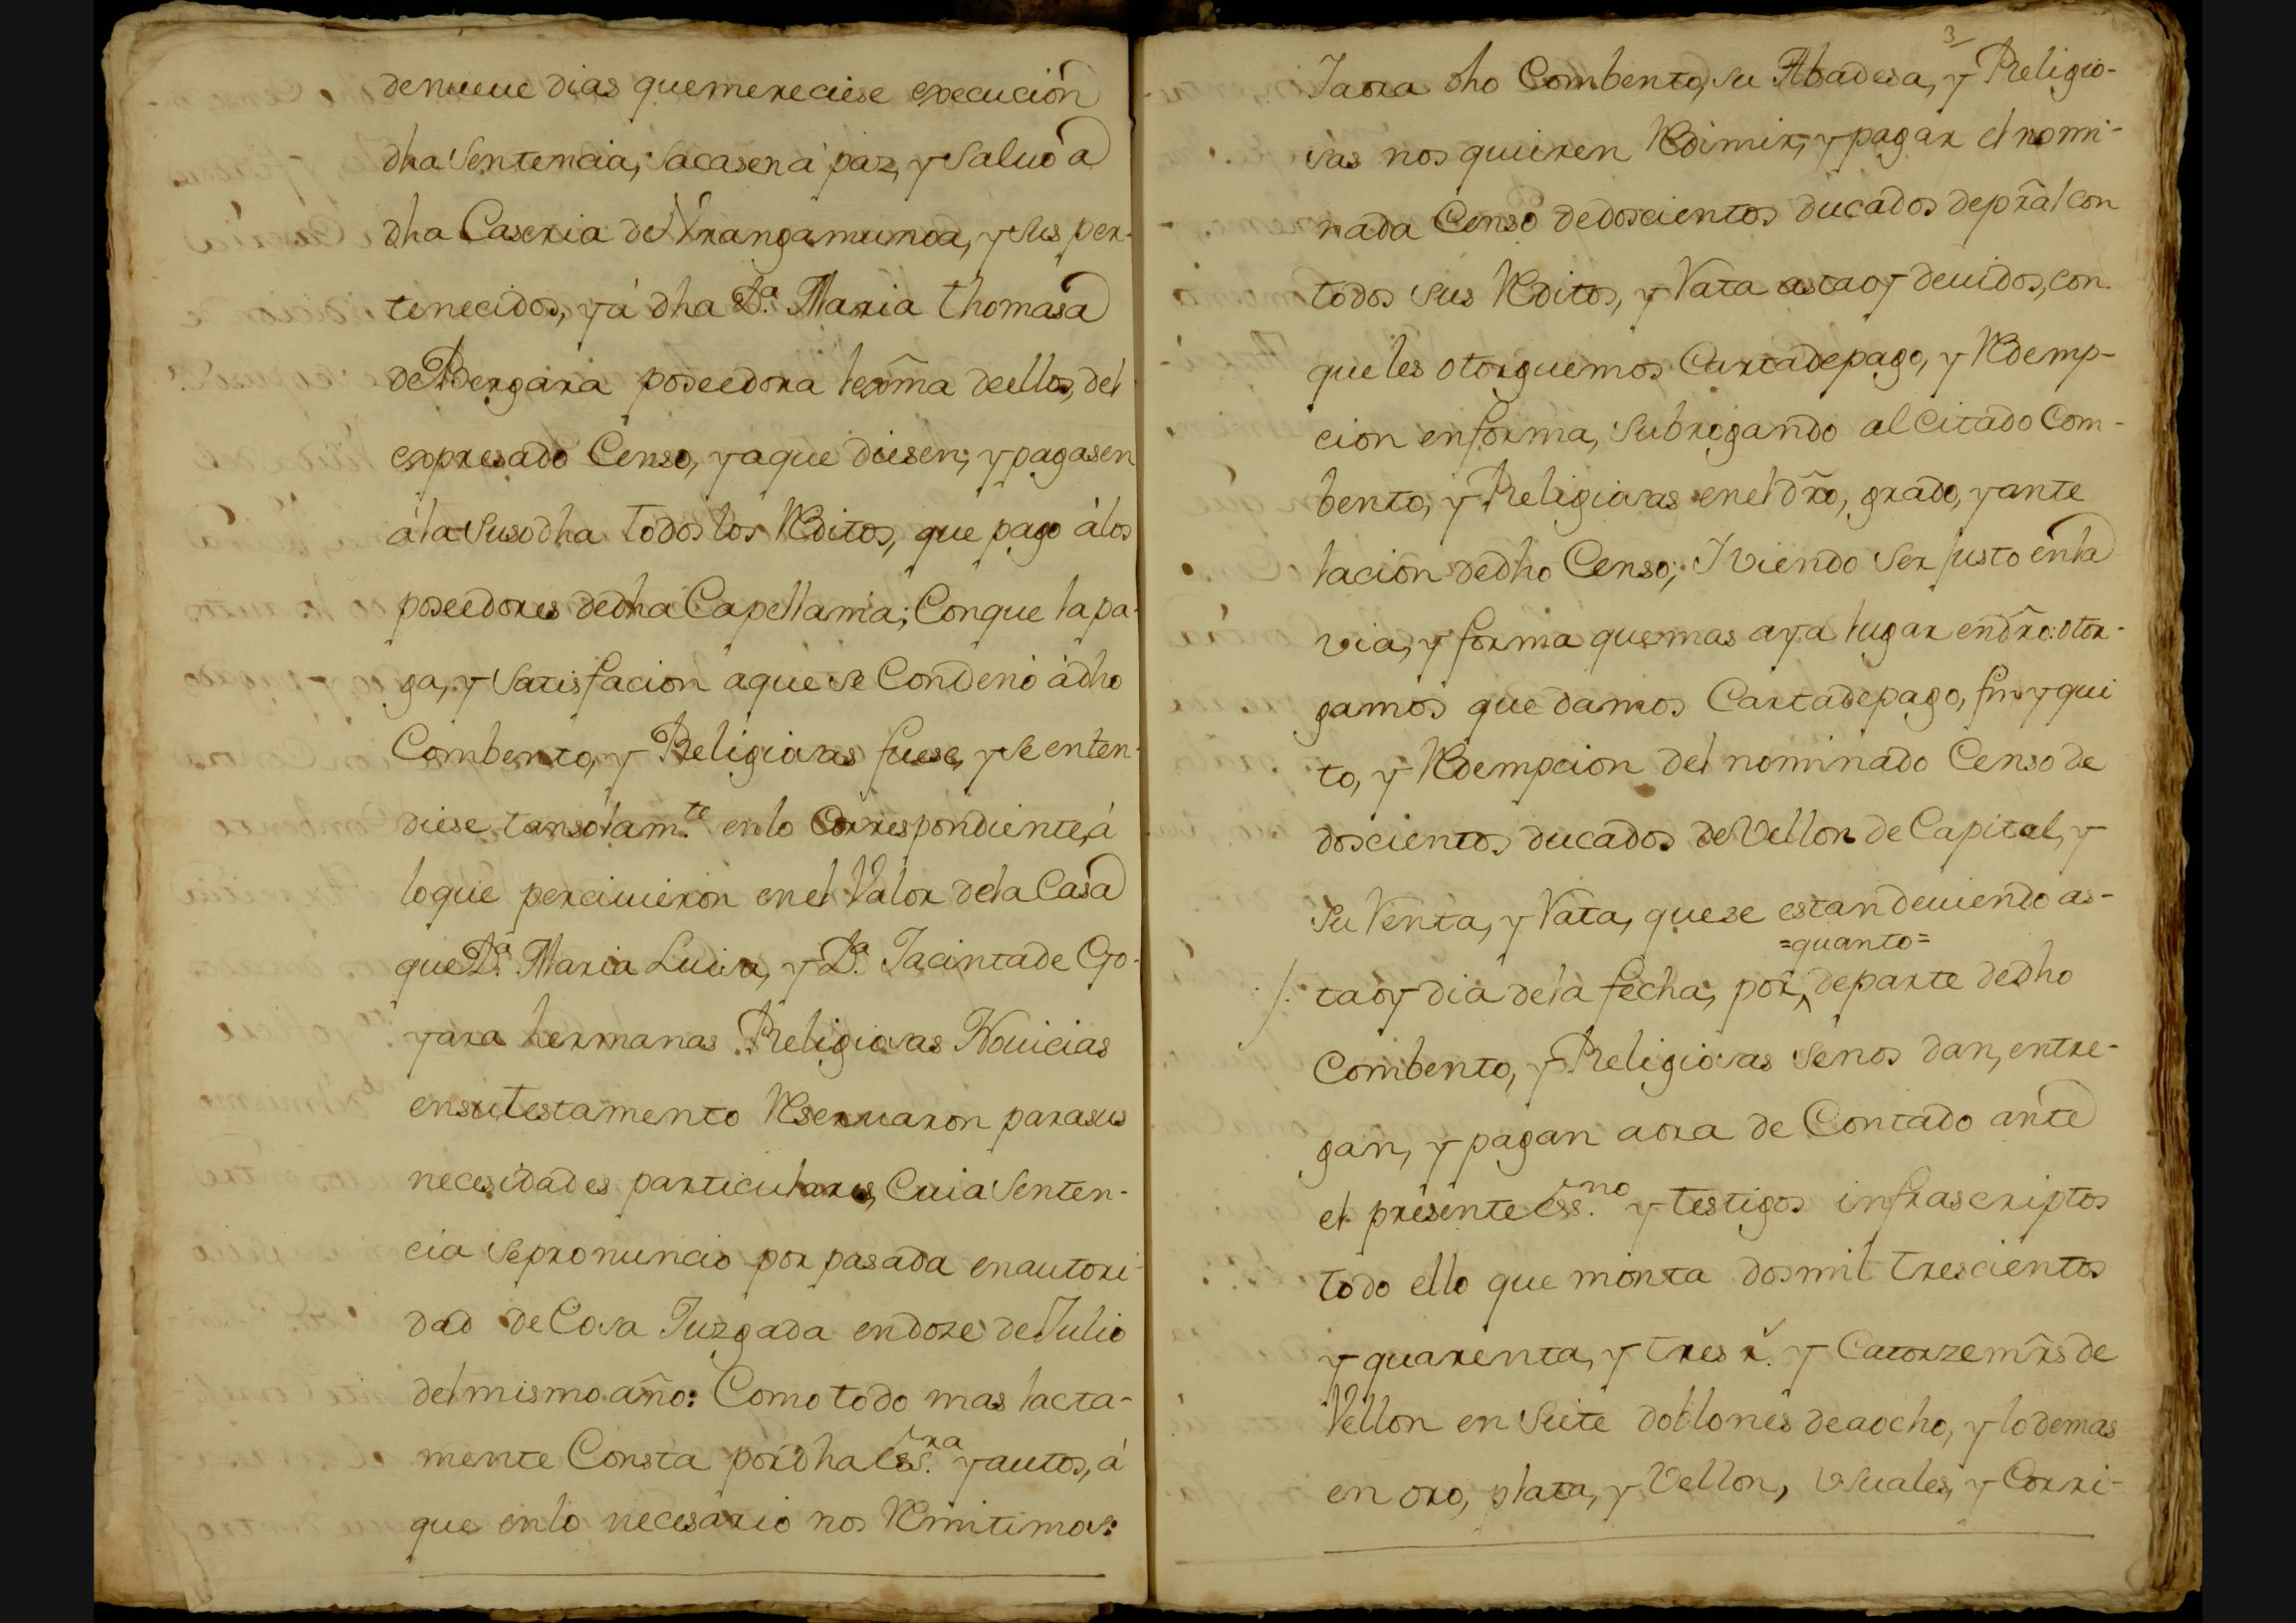 denueue dias quemereciese execución
dha Sentencia, sacasen á paz, y Saluo á
dha Caseria de Vrangamunoa, y sus per-
tenecidos, y á dha D.ª Maria thomasa
de Bergara poseedora lexma de ellos, del
expresado Censo, y aque diesen, y pagasen
á la Susodha todos los Reditos, que pago álos
poseedores dedha Capellania; Conque la pa-
ga, y Satisfacion aque se Condenó ádho
Combento, y Religiosas fuese, y se enten-
diese tansolam.te en lo Correspondiente, á
loque perciuieron en el Valor dela Casa
que D.ª Maria Luisa, y D.ª Jacinta de Go-
yara hermanas Religiosas Nouicias
ensutestamento Reseruaron parasus
necesidades particulares, Cuia Senten-
cia sepronuncio por pasada enautori-
dad de Cosa Juzgada endoze de Julio
del mismo año: Como todo mas lacta-
mente Consta pordha ess.ra y autos, á
que enlo necesario nos Remitimos:
3
Iaora dho Combento, su Abadesa, y Religio-
sas nos quieren Redimir, y pagar el nomi-
nada Censo dedoscientos ducados deprãl con
todos sus Reditos, y Rata astaoy deuidos, con
que les otorguemos Cartadepago, y Redemp-
cion enforma, Subrogando al Citado Com-
bento, y Religiosas enel drõ, grado, y ante
lacion dedho Censo; I viendo Ser justo enla
via, y forma quemas aya lugar endrõ: otor-
gamos que damos Cartadepago, fin y qui
to, y Redempcion del nominado Censo de
doscientos ducados de Vellon de Capital, y
su Renta, y Rata, quese estandeuiendo as-
=quanto=
taoy dia dela fecha, por departe dedho
Combento, y Religiosas Senos dan, entre-
gan, y pagan aora de Contado ante
el presente ess.no y testigos infrascriptos
todo ello que monta dosmil trescientos
y quarenta, y tres r.s y Catorze mrs̃ de
Vellon en Siete doblones deaocho, y lodemas
en oro, plata, y Vellon, vsuales, y Corri-